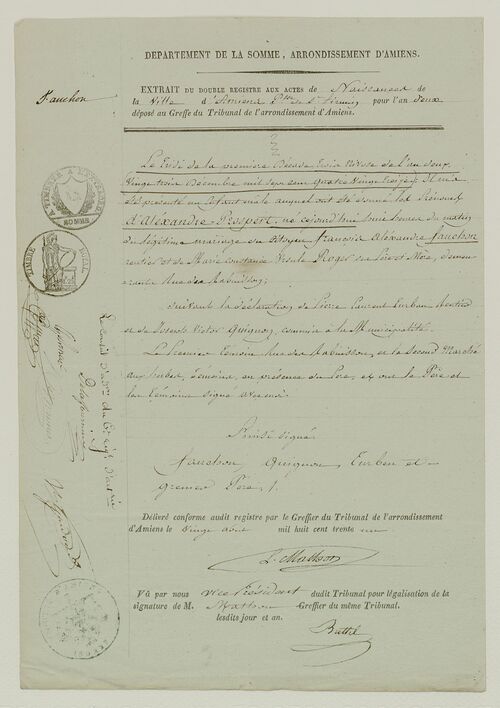 DEPARTEMENT DE LA SOMME, ARRONDISSEMENT D'AMIENS.
Fauchon
EXTRAIT DU DOUBLE REGISTRE AUX ACTES DE Naissances de
la Ville d'Amiens pour l'an deux
déposé au Greffe du Tribunal de l'arrondissement d'Amiens.
Le Tridi de la première Décade trois Nivose de l'an deux,
Vingt trois Décembre mil sept cent quatre vingt treize, Il m'a
été présenté un Enfant mâle auquel ont été donné les Prénoms
d'Alexandre Prosper, né cejourd'hui huit heures du matin
du légitime mariage du Citoyen François Aléxandre fauchon
rentier et de Marie Constance Ursule Roger ses Père et Mère, demeu-
rant Rue des Rabuissons;
suivant la déclaration de Pierre Laurent Eurban
et de Joseph Victor Quignon, commis à la Municipalité.
Le premier témoin Rue des Rabuissons, et le second Marché
aux herbes, témoins, en présence du Père, et ont le Père et
les témoins signé avec moi
Ainsi signé
fauchon, Quignon, Eurban et
Grenier Père
Délivré conforme audit registre par le Greffier du Tribunal de l'arrondissement
d'Amiens le vingt août mil huit cent trente un
L. Mathon
Vû par nous vice Président dudit Tribunal pour légalisation de la
signature de M. Mathon Greffier du même Tribunal.
lesdits jour et an.
TIMBRE ROYAL